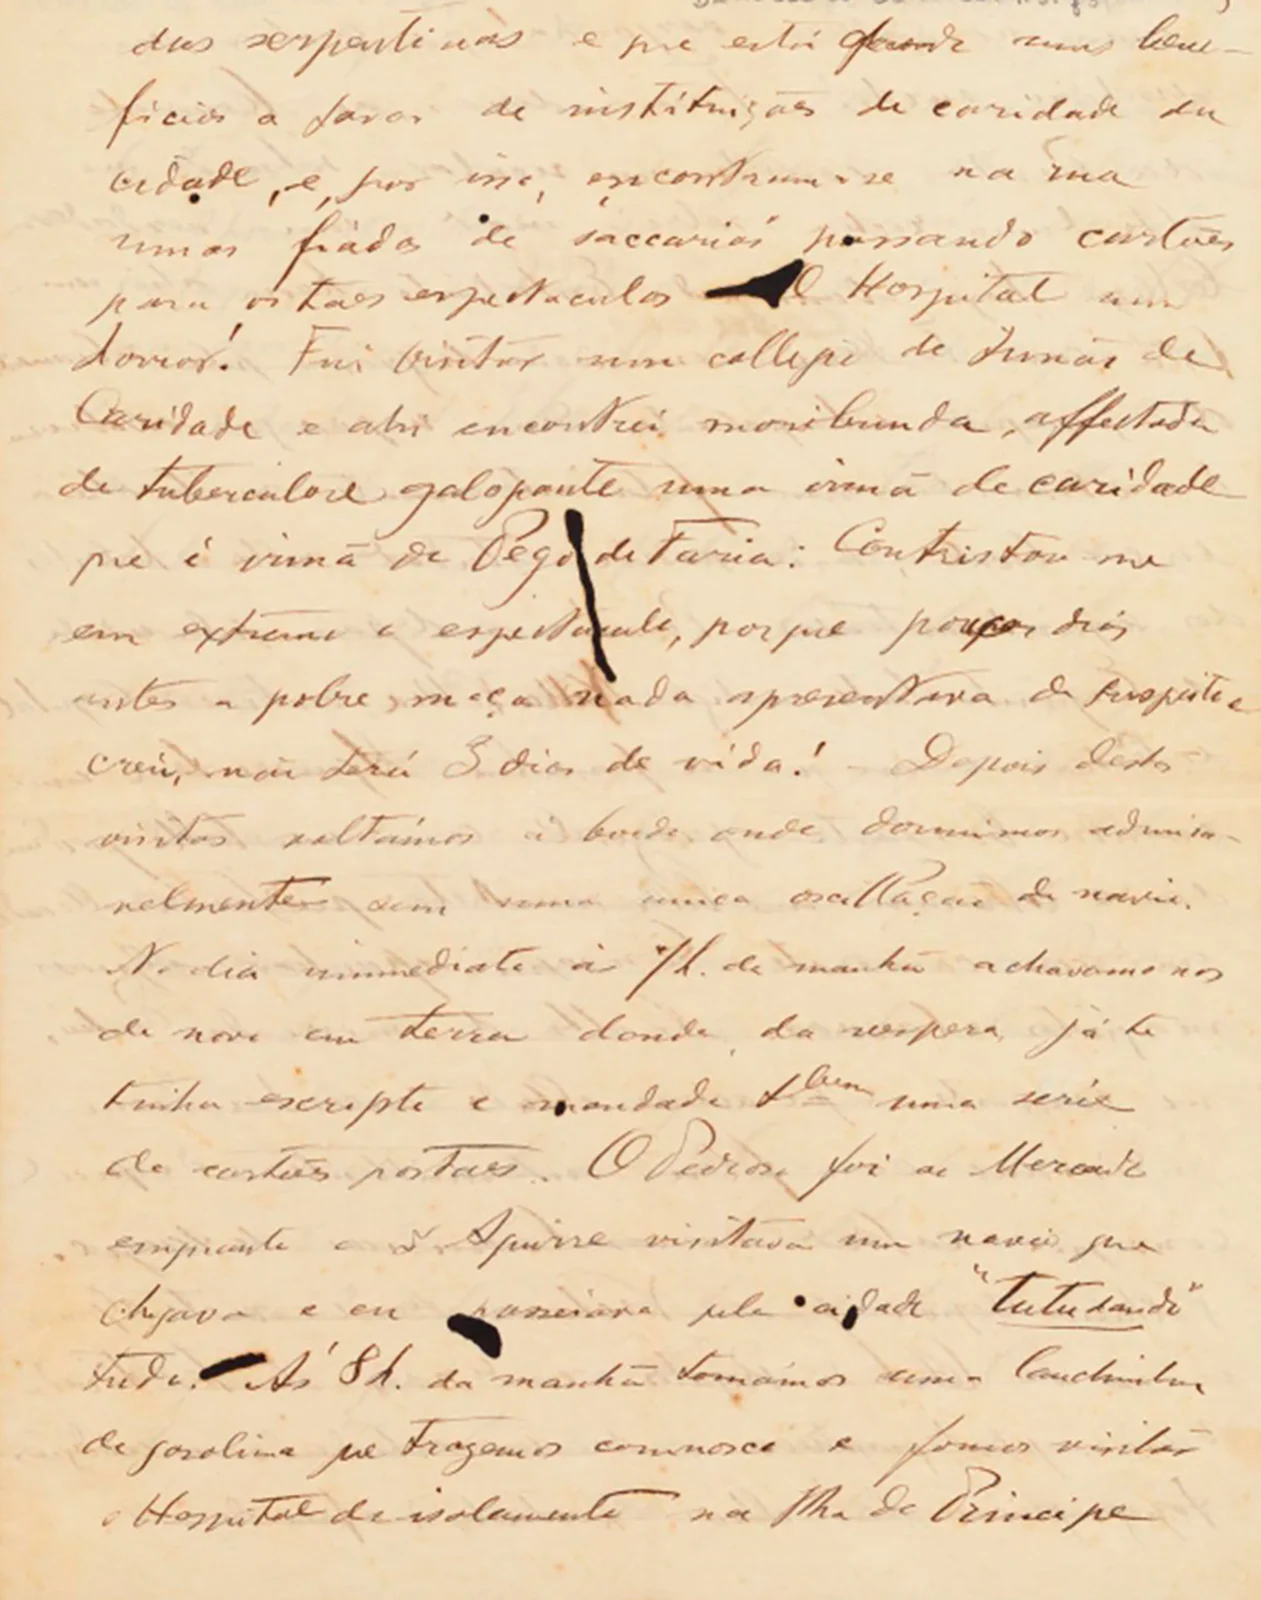 das serpentinas e que está dando uns bene-
ficios a favor de instituições de caridade da
cidade, e, por isso, encontram-se na rua
umas de saccarias passando cartões
para os taes espectaculos O Hospital um
horror! Fui visitar um collegio de Irmãs de
Caridade e ahi encontrei moribunda, affectada
de tuberculose galopante uma irmã de caridade
que é irmã de Pego de Faria: Contristou-me
em extremo o espectaculo, porque poucos dias
antes a pobre moça nada apresentava de suspeito e
creio, não terá 3 dias de vida! - Depois destas
visitas voltámos a bordo onde dormimos admira-
velmente sem uma unica oscillação do navio.
No dia immediato ás 7h. da manhã achavamo nos
de novo em terra donde, da vespera, já te
tinha escripto e mandado tbem uma serie
de cartões postaes. O Pedroso foi ao Mercado
emquanto o Sr Aguirre visitava um navio que
chegava e eu passeiava pela cidade "tutudando"
tudo. Ás 8h. da manhã tomámos uma lanchinha
de gasolina que trazemos comnosco e fomos visitar
o Hospital de isolamento na Ilha do Principe